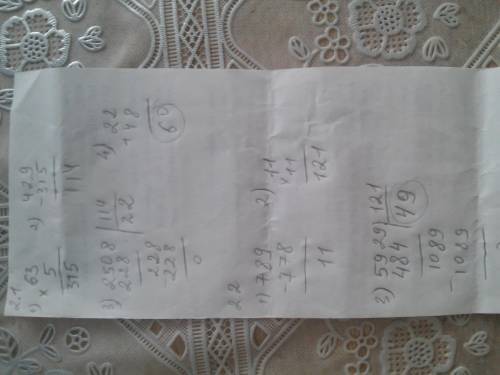 2.1
1) × 63
5
315
2) 429
-315
114
3) 2508 | 114
228 | 22
228
-228
0
4) 22
+48
69
2.2
1) 789
-778
11
2) 11
×11
121
3) 5929 | 121
484 | 49
1089
-1089